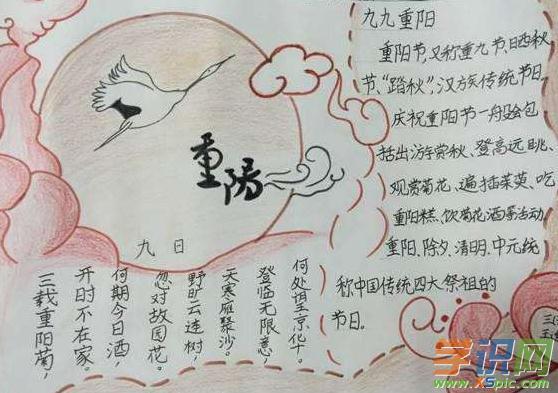 重阳
九日
三载重阳菊，
开时不在家。
何期今日酒，
忽对故园花。
野旷云连树，
天寒雁聚沙。
登临无限意，
何处望京华。
九九重阳
重阳节，又称重九节、晒秋
节、“踏秋”，汉族传统节日。
庆祝重阳节一般会包
括出游赏秋、登高远眺、
观赏菊花、遍插茱萸、吃
重阳糕、饮菊花酒等活动
重阳、除夕、清明、中元统
称中国传统四大祭祖的
节日。
学识网
www.XSpic.com